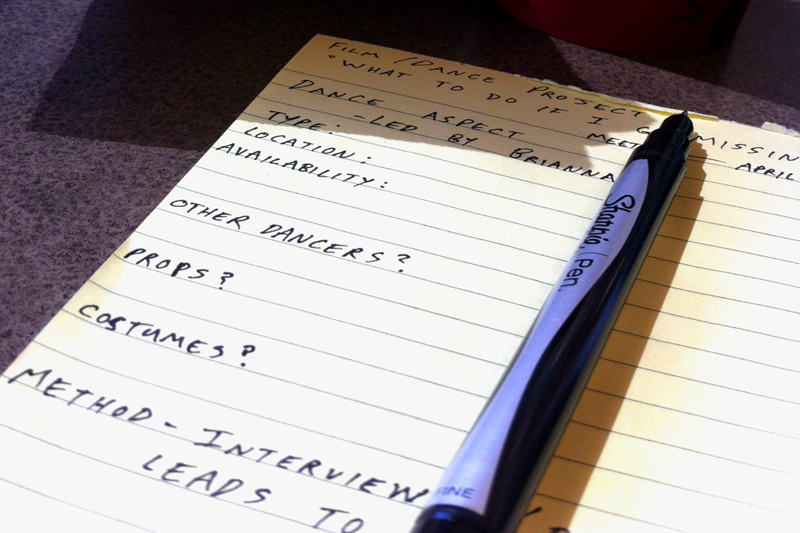 FILM/DANCE PROJECT
"WHAT TO DO IF I G MISSIN
DANCE ASPECT MEET APRIL
TYPE: - LED BY BRIANNA
LOCATION:
AVAILABILITY:
OTHER DANCERS?
PROPS?
COSTUMES?
METHOD - INTERVIEW
LEADS TO
Sharpie Pen.
FINE